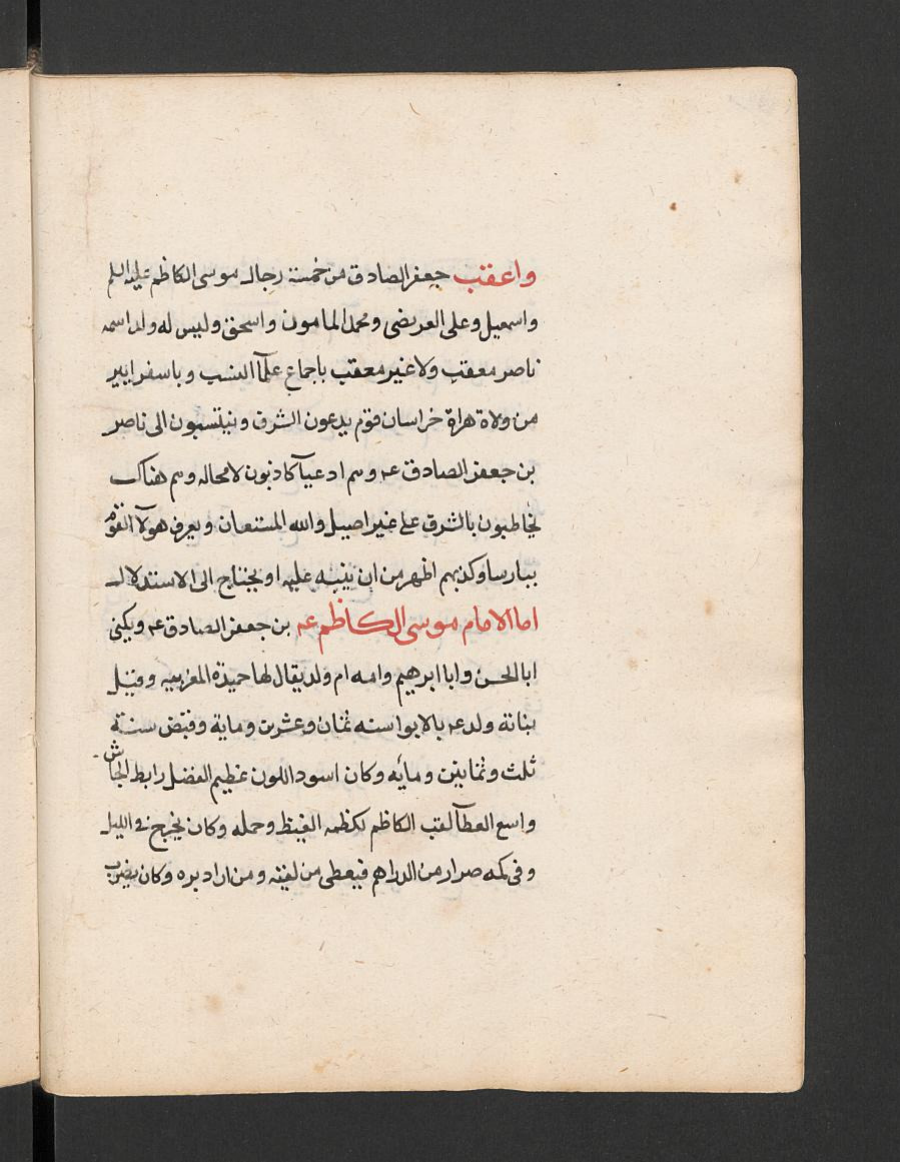 واعقب جعفر الصادق من خمسة رجال موسى الكاظم عليه السلم
واسمعيل وعلى العريضى ومحمد المامون واسحق وليس له ولد اسمه
ناصر معقب ولا غير معقب باجماع علمآ النسب وباسفرايير
من ولاة هراة خراسان قوم يدعون الشرف وينتسبون الى ناصر
بن جعفر الصادق عه وهم ادعيآ كاذبون لا محاله وهم هناك
يخاطبون بالشرف على غير اصيل والله المستعان ويعرف هولآ القوم
ببارسا وكذبهم اظهر من ان ينبه عليه او يحتاج الى الاستدلال
اما الامام موسى الكاظم عه بن جعفر الصادق عه ويكنى
ابا الحسن وابا ابرهيم وامه ام ولد يقال لها حميدة المغربيه وقيل
بنانة ولد عه بالابوا سنه ثمان وعشرين وماية وقبض سنة
ثلث وثمانين ومائه وكان اسود اللون عظيم الفضل رابط الجاش
واسع العطآ لقب الكاظم لكظمه الغيظ وحمله وكان يخرج فى الليل
وفى كمه صرار من الدراهم فيعطى من لقيه ومن اراد بره وكان يضرب